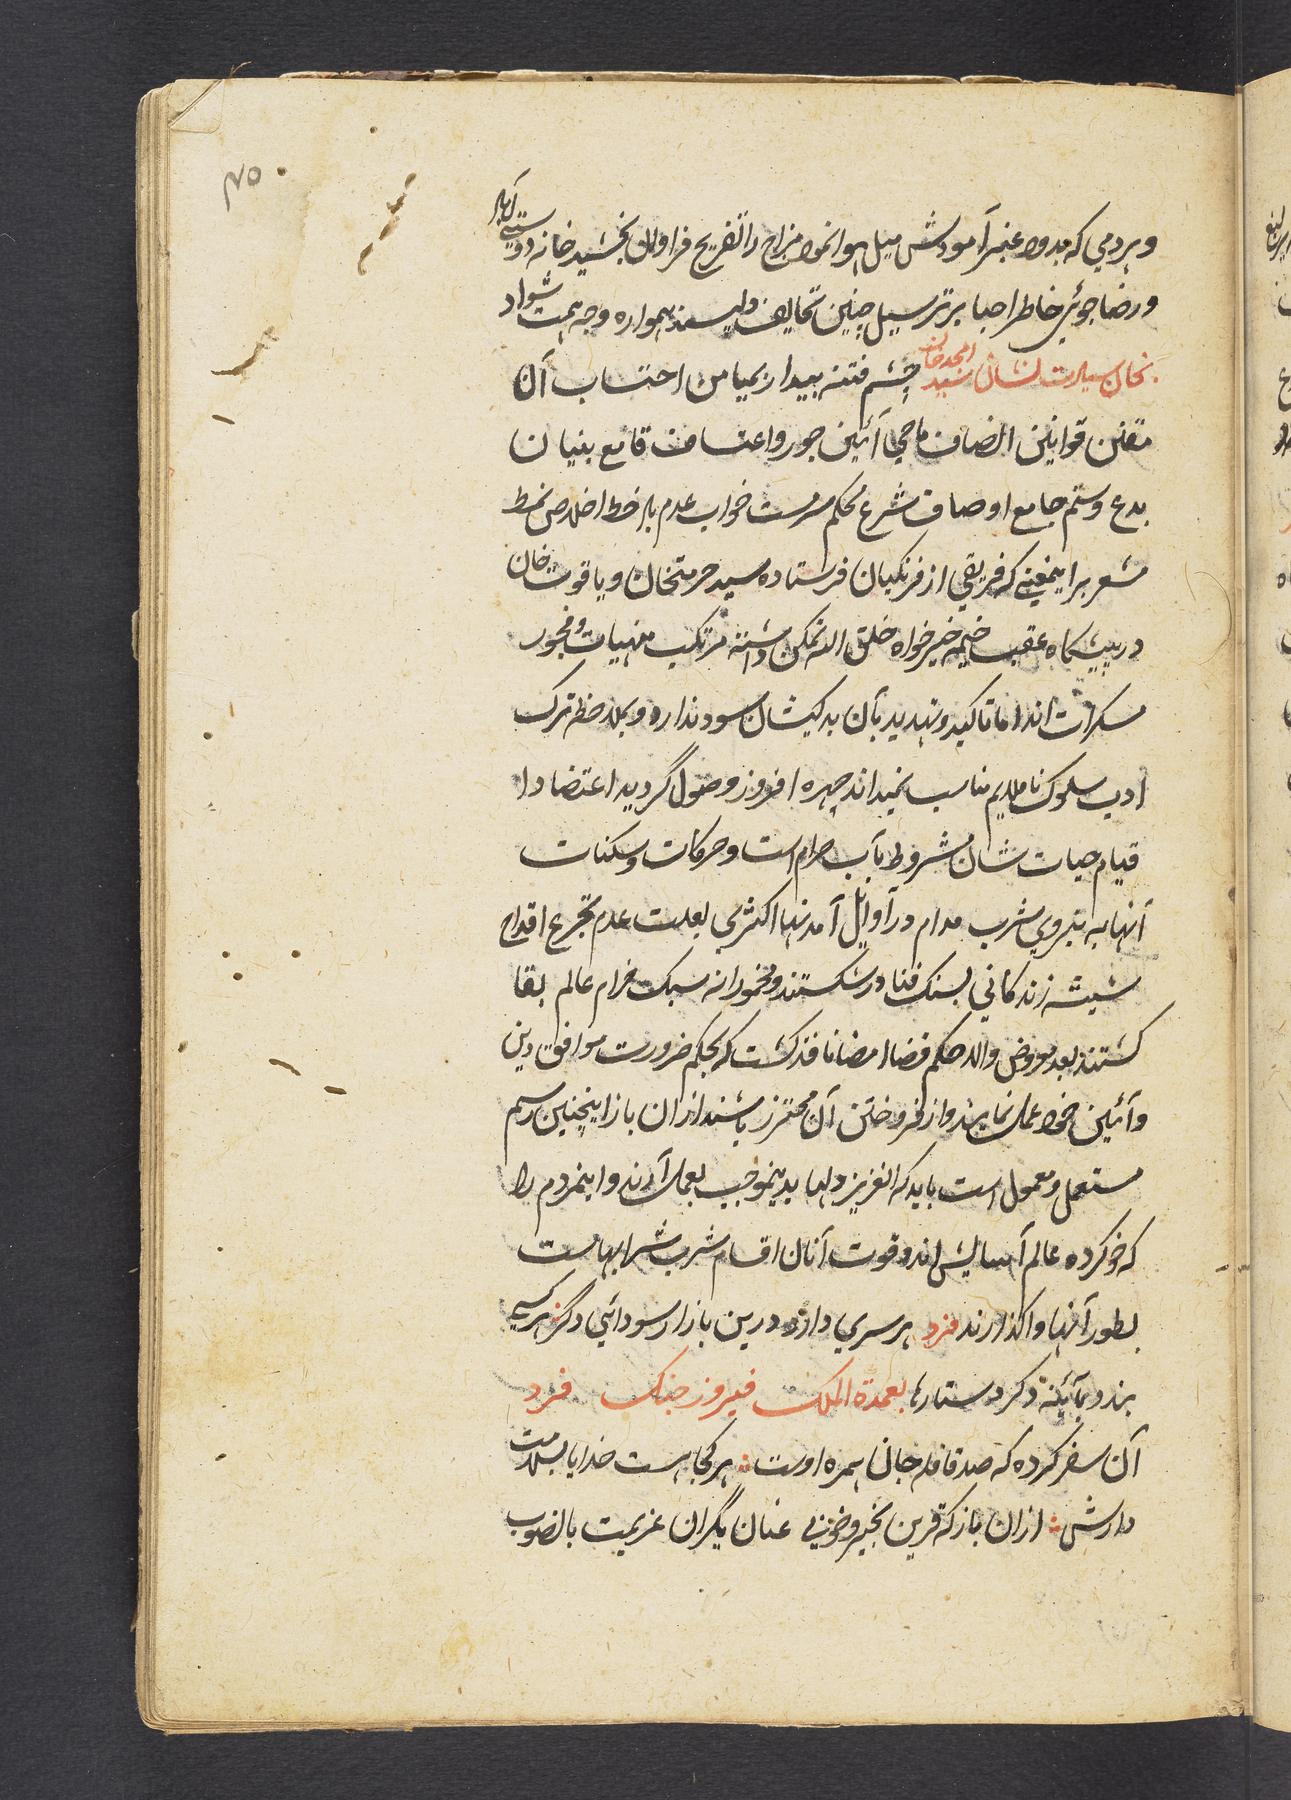 ۴۵۰
و هر دمی که بدود عنبر آمودش میل هوا نمود مزاج را تفریح فراوان بخشید خانه دوستی آباد
و رضا جوئی خاطر احبا بر ترسیل چنین تحایف دلپسند همواره وجه همت شواد
بخان سیادت نشان سید امجد خان چشم فتنه بیدار بمیامن احتساب آن
مقنن قوانین انصاف ماحی آئین جور و اعتساف قامع بنیان
بدع و ستم جامع اوصاف شرع محکم سرمست خواب عدم باد خط اخلاص نمط
مشعر بر اینمعنی که فریقی از فرنگیان فرستاده سید حرمتخان و یاقوت خان
در پیشگاه عقب خیمه خیرخواه خلق الله تمکن داشته مرتکب منهیات و فجور
مسکرات اند اما تاکید و تهدید بآن بدکیشان سود ندارد و بملاحظه ترک
ادب سلوک ناملایم مناسب نمیداند چهره افروز وصول گردید اعتضادا
قیام حیات شان مشروط بآب حرام است و حرکات و سکنات
آنها به نیروی شرب مدام در اوایل آمدنها اکثری بعلت عدم تجرع اقداح
شیشه زندگانی بسنگ فنا در شکستند و مخمورانه سبک خرام عالم بقا
گشتند بعد معروض والا حکم قضا امضا نافذ گشت که بحکم ضرورت موافق دین
و آئین خود عمل نمایند و از فروختن آن محترز باشند ازان باز اینچنین رسم
مستعمل و معمول است باید که العزیز دلها بدینموجب بعمل آرند و اینمردم را
که خو کرده عالم آسایش اند و قوت آنان اقسام شرب شرابهاست
بطور آنها واگذارند فرد هر سری دارد درین بازار سودائی دگر هر کسی
بندد بآئینه دگر دستار را بعمدة الملک فیروز جنگ فرد
آن سفر کرده که صد قافله جان همره اوست هر کجا هست خدایا بسلامت
دارش ازان باز که قرین بخیر و خوبی عنان یگران عزیمت بالصوب